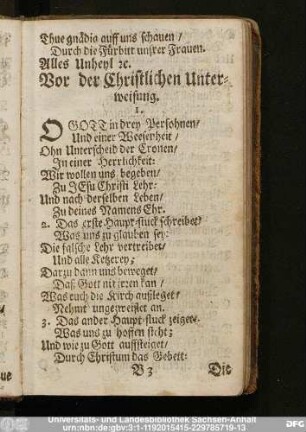 Thue gnädig auff uns schauen /
Durch die Fürbitt unsrer Frauen.
Alles Unheyl ꝛc.
Vor der Christlichen Unter-
weisung.
1.
O GOTT in drey Persohnen /
Und einer Weesenheit /
Ohn Unterscheid der Cronen /
In einer Herrlichkeit:
Wir wollen uns begeben /
Zu JEsu Christi Lehr:
Und nach derselben Leben /
Zu deines Namens Ehr.
2. Das erste Haupt-stuck schreibet /
Was uns zu glauben sey:
Die falsche Lehr vertreibet /
Und alle Ketzerey;
Darzu dann uns beweget /
Daß Gott nit irren kan /
Was euch die Kirch außleget /
Nehmt ungezweiflet an.
3. Das ander Haupt-stuck zeiget /
Was uns zu hoffen steht;
Und wie zu Gott auffsteiget /
Durch Christum das Gebett:
B 3 Die
Universitäts- und Landesbibliothek Sachsen-Anhalt
urn:nbn:de:gbv:3:1-1192015415-229785719-13
DFG